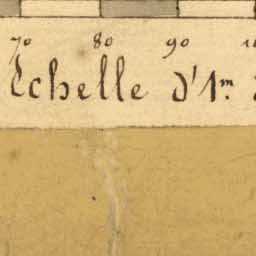 70 80 90
Echelle d'1m